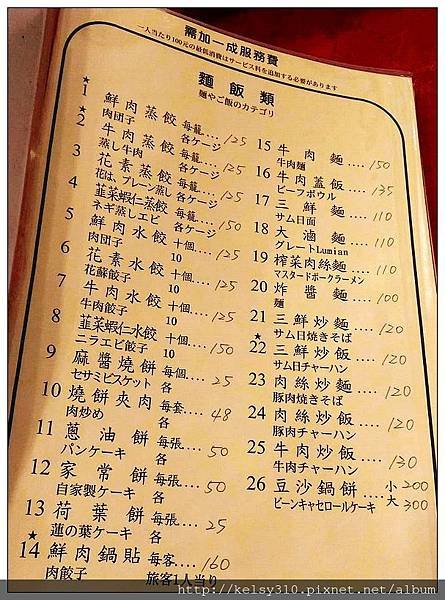 需加一成服務費
一人当たり100元の最低消費はサービス料を追加する必要があります
麵飯類
麺やご飯のカテゴリ
★
1 鮮肉蒸餃 每籠... 125
肉団子 各ケージ
★
2 牛肉蒸餃 每籠... 125
蒸し牛肉 各ケージ
3 花素蒸餃 每籠... 125
花は、プレーン蒸し 各ケージ
4 韮菜蝦仁蒸餃 每籠... 150
ネギ蒸しエビ 各ケージ
5 鮮肉水餃 十個... 125
肉団子 10
6 花素水餃 十個... 125
花蘇餃子 10
7 牛肉水餃 十個... 125
牛肉餃子 10
8 韮菜蝦仁水餃 十個... 150
ニラエビ餃子 10
9 麻醬燒餅 每個... 25
セサミビスケット 各
10 燒餅夾肉 每套... 48
肉炒め 各
11 蔥油餅 每張... 50
パンケーキ 各
12 家常餅 每張... 50
自家製ケーキ 各
13 荷葉餅 每張... 25
蓮の葉ケーキ 各
★
14 鮮肉鍋貼 每客... 160
肉餃子 旅客1人当り
15 牛肉麵.... 150
牛肉麺
16 牛肉蓋飯.... 135
ビーフボウル
17 三鮮麵.... 110
サム日面
18 大滷麵.... 110
グレートLumian
19 榨菜肉絲麵... 110
マスタードポークラーメン
20 炸醬麵.... 100
麺
21 三鮮炒麵.... 120
サム日焼きそば
★
22 三鮮炒飯.... 120
サム日チャーハン
23 肉絲炒麵.... 120
豚肉焼きそば
24 肉絲炒飯.... 120
豚肉チャーハン
25 牛肉炒飯.... 130
牛肉チャーハン
26 豆沙鍋餅.... 小 200
ビーンキャセロールケーキ 大 300
http://kelsy310.pixnet.net/album